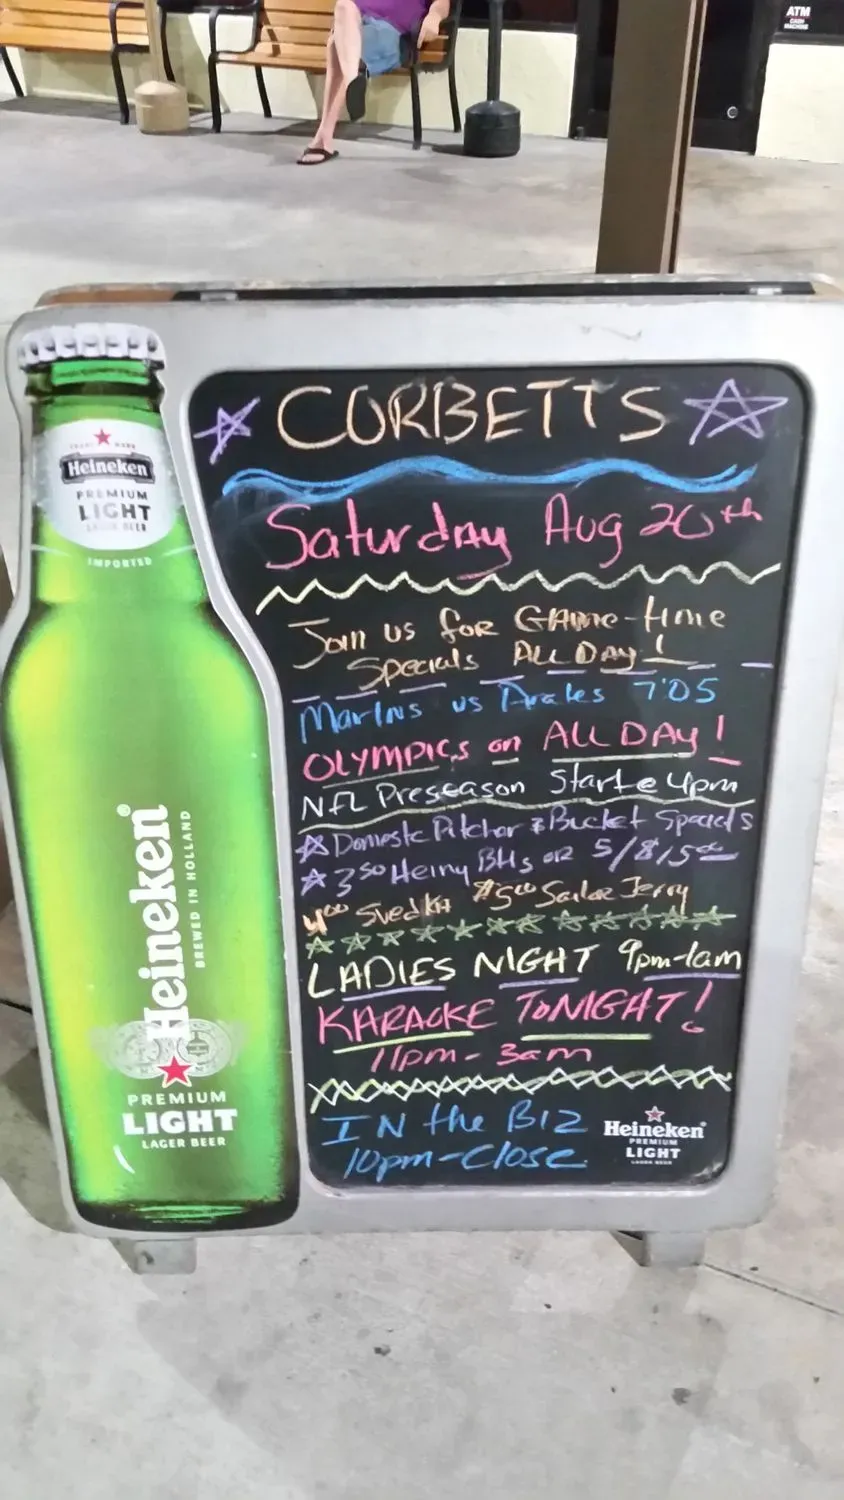 ATM
CASH
MACHINE
CORBETTS
Saturday Aug 20th
Join us for GAMe-time
Specials ALL DAy!
Marlns vs Pirates 7:05
OLYMPICS on ALL DAy!
NFL Preseason Start @ 4pm
Domestc Pitcher & Bucket Specials
3.50 Heiny BHs or 5/$15.00
4.00 Svedka $5.00 Sailor Jerry
LADIES NIGHT 9pm-1am
KARAOKE TONIGHT!
11pm - 3am
IN the BIZ
10pm-Close
Heineken
PREMIUM
LIGHT
LAGER BEER
TRADE MARK
Heineken
PREMIUM
LIGHT
LAGER BEER
IMPORTED
Heineken®
BREWED IN HOLLAND
PREMIUM
LIGHT
LAGER BEER